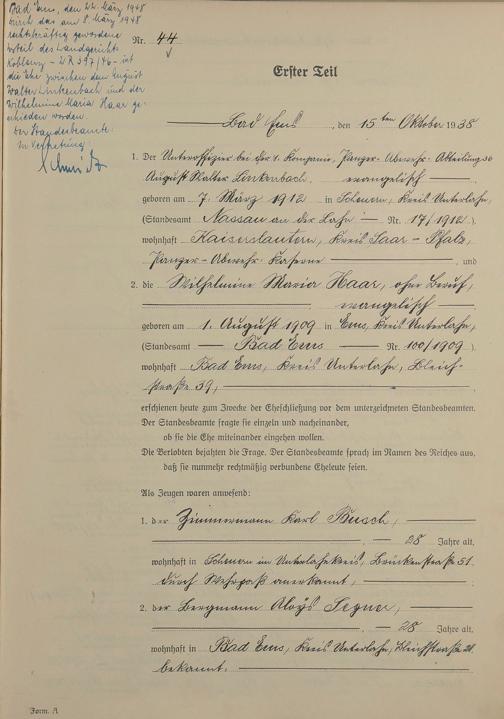 Bad Ems, den 22. März 1948
Durch das am 8. März 1948
rechtskräftig gewordene
Urteil des Landgerichts
Koblenz - 2 R 397/46 - ist
die Ehe zwischen dem August
Walter Linkenbach und der
Wilhelmine Maria Haar ge-
schieden worden.
Der Standesbeamte:
In Vertretung:
Nr. 44
Erster Teil
Bad Ems, den 15ten Oktober 1938
1. Der Unteroffizier bei der 1. Kompanie, Panzer-Abwehr-Abteilung 36
August Walter Linkenbach, evangelisch
geboren am 7. März 1912 in Scheuern, Kreis Unterlahn,
(Standesamt Nassau an der Lahn Nr. 17/1912).
wohnhaft Kaiserslautern, Kreis Saar-Pfalz,
Panzer-Abwehr-Kaserne, und
2. die Wilhelmine Maria Haar, ohne Beruf,
evangelisch
geboren am 1. August 1909 in Ems, Kreis Unterlahn,
(Standesamt Bad Ems Nr. 100/1909)
wohnhaft Bad Ems, Kreis Unterlahn, Bleich-
straße 39,
erschienen heute zum Zwecke der Eheschließung vor dem unterzeichneten Standesbeamten.
Der Standesbeamte fragte sie einzeln und nacheinander,
ob sie die Ehe miteinander eingehen wollen.
Die Verlobten bejahten die Frage. Der Standesbeamte sprach im Namen des Reiches aus,
daß sie nunmehr rechtmäßig verbundene Eheleute seien.
Als Zeugen waren anwesend:
1. der Zimmermann Karl Busch,
28 Jahre alt,
wohnhaft in Scheuern im Unterlahnkreis, Brückenstraße 51.
durch Wehrpaß anerkannt,
2. der Bergmann Aloys
28 Jahre alt,
wohnhaft in Bad Ems, Kreis Unterlahn, Bleichstraße
bekannt.
Form. A